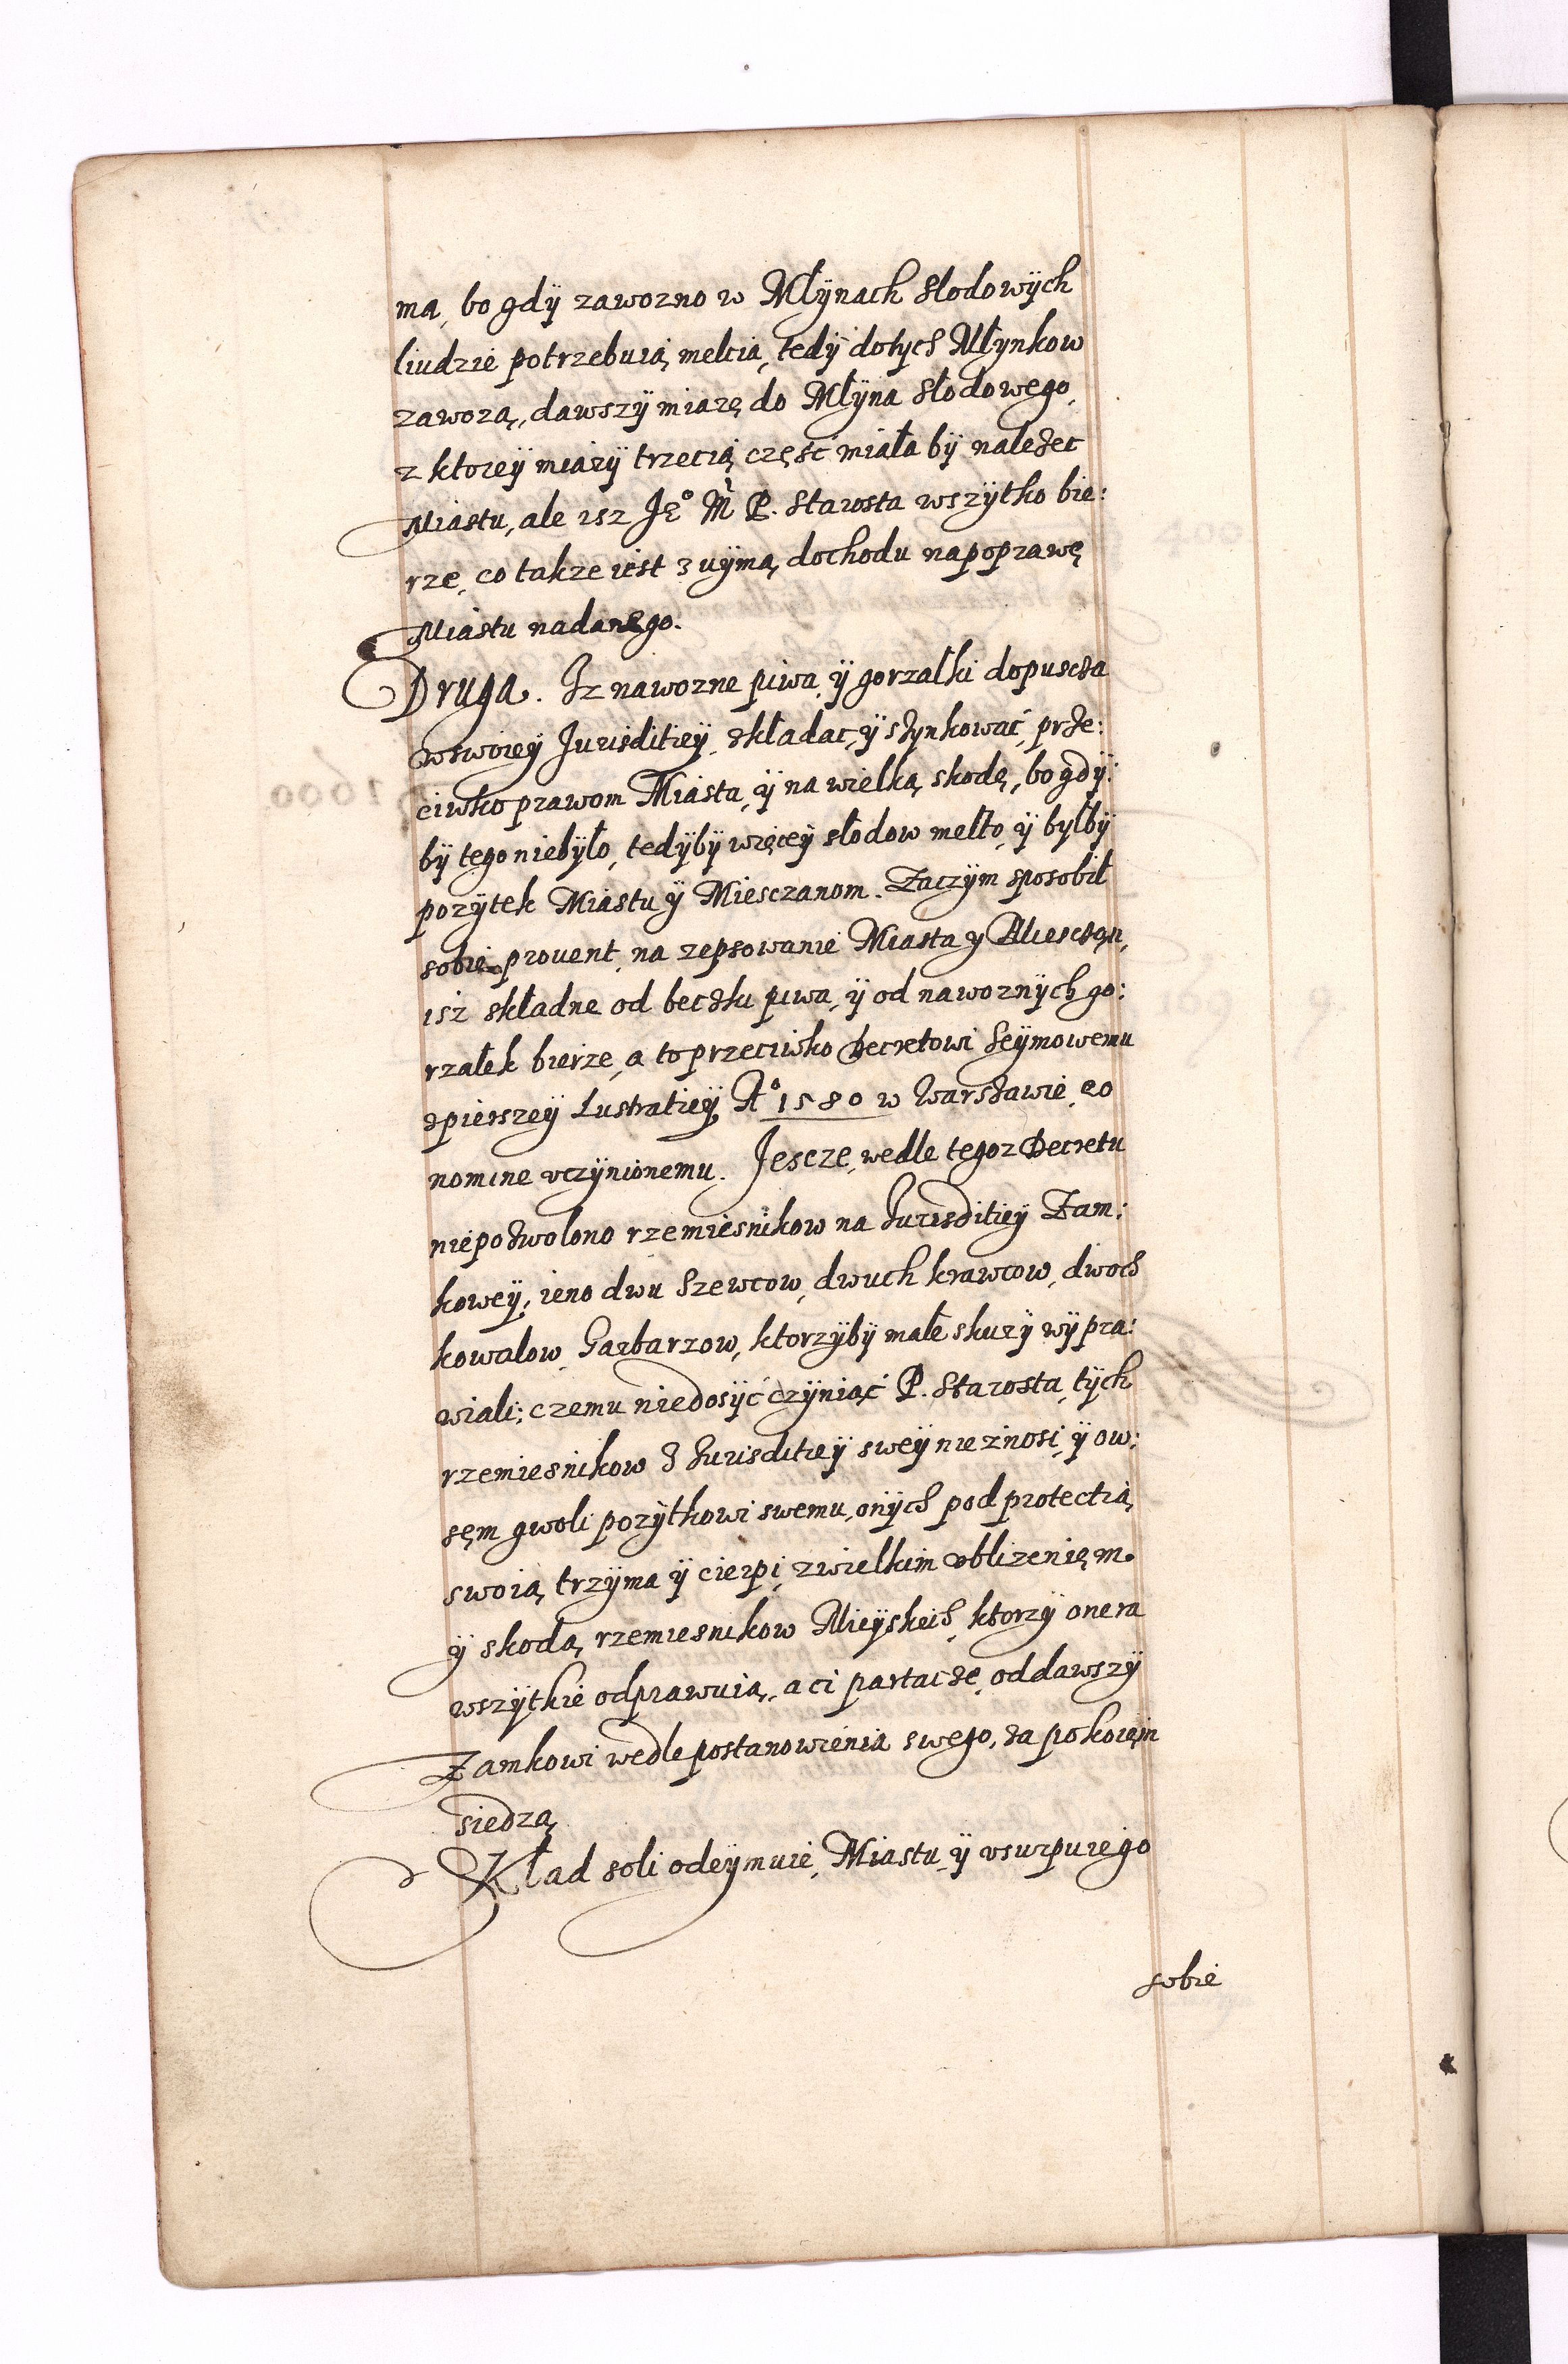 ma, bo gdÿ zawozno w Młÿnach słodowÿch
liudzie potrzebuią melcia, tedÿ dotych Młynkow
zawozą, dawszÿ miarę do Młÿna słodowego,
z ktoreÿ miarÿ trzecią częsc miała bÿ należec
Miastu, ale isz Jeº Mˢ P. Starosta wszÿtko bie:
rze, co takze iest z uÿmą dochodu napoprawę
Miastu nadanego.
Druga. Iz nawozne piwa ÿ gorzałki dopuscza
wswoieÿ Jurisditieÿ składac, ÿ sżynkować, prze:
ciwko prawom Miasta, ÿ na wielką skodę, bo gdÿ:
bÿ tego niebÿło, tedÿbÿ więceÿ słodow mełto, ÿ byłbÿ
pozÿtek Miastu ÿ Miesczanom. Zaczÿm sposobił
sobie prouent, na zepsowanie Miasta y Miesczan,
isż składne od beczku piwa, ÿ od nawoznÿch go:
rzałek bierze, a to przeciwko Decretowi Seÿmowemu
zpierszeÿ Lustratieÿ Aº 1580 w Warszawie, eo
nomine vczÿnionemu. Jescze, wedle tegoz Decretu
niepozwolono rzemiesnikow na Jurisditieÿ Zam:
koweÿ, ieno dwu Szewcow, dwuch krawcow, dwoch
kowalow, Garbarzow, ktorzÿbÿ małe skurÿ wÿpra:
wiali; czemu niedosÿć czÿniąć P. Starosta, tÿch
rzemiesnikow z Jurisditieÿ sweÿ nie znosi, ÿ ow:
sęm gwoli pozÿtkowi swemu, onÿch pod protectią
swoią trzÿma ÿ cierpi, zwielkim vblizenięm.
ÿ skodą rzemiesnikow Mieÿskich, ktorzÿ onera
wszÿtkie odprawuią, a ci partacze, oddawszÿ
Zamkowi wedle postanowienia swego, za pokoięm
siedzą
Kład soli odeÿmuie, Miastu, ÿ vsurpuie go
sobie